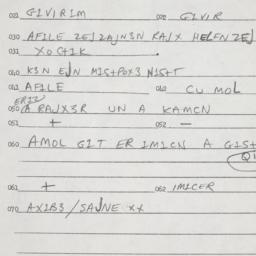 021 GIVIRIM 022 GIVIR
030 AFILE ZEJZAJN3N RAJX HELEN ZEJ
031 XOCTIK .
040 K3N EJN MIST POX3 NIST
041 AFILE 042 CU MOL
050 A RAJX3R UN A KAMCN
051 + 052 -
060 AMOL GIT ER IMICN A GIST
061 + 062 IMICER
070 AXIB3/SAJNE XX